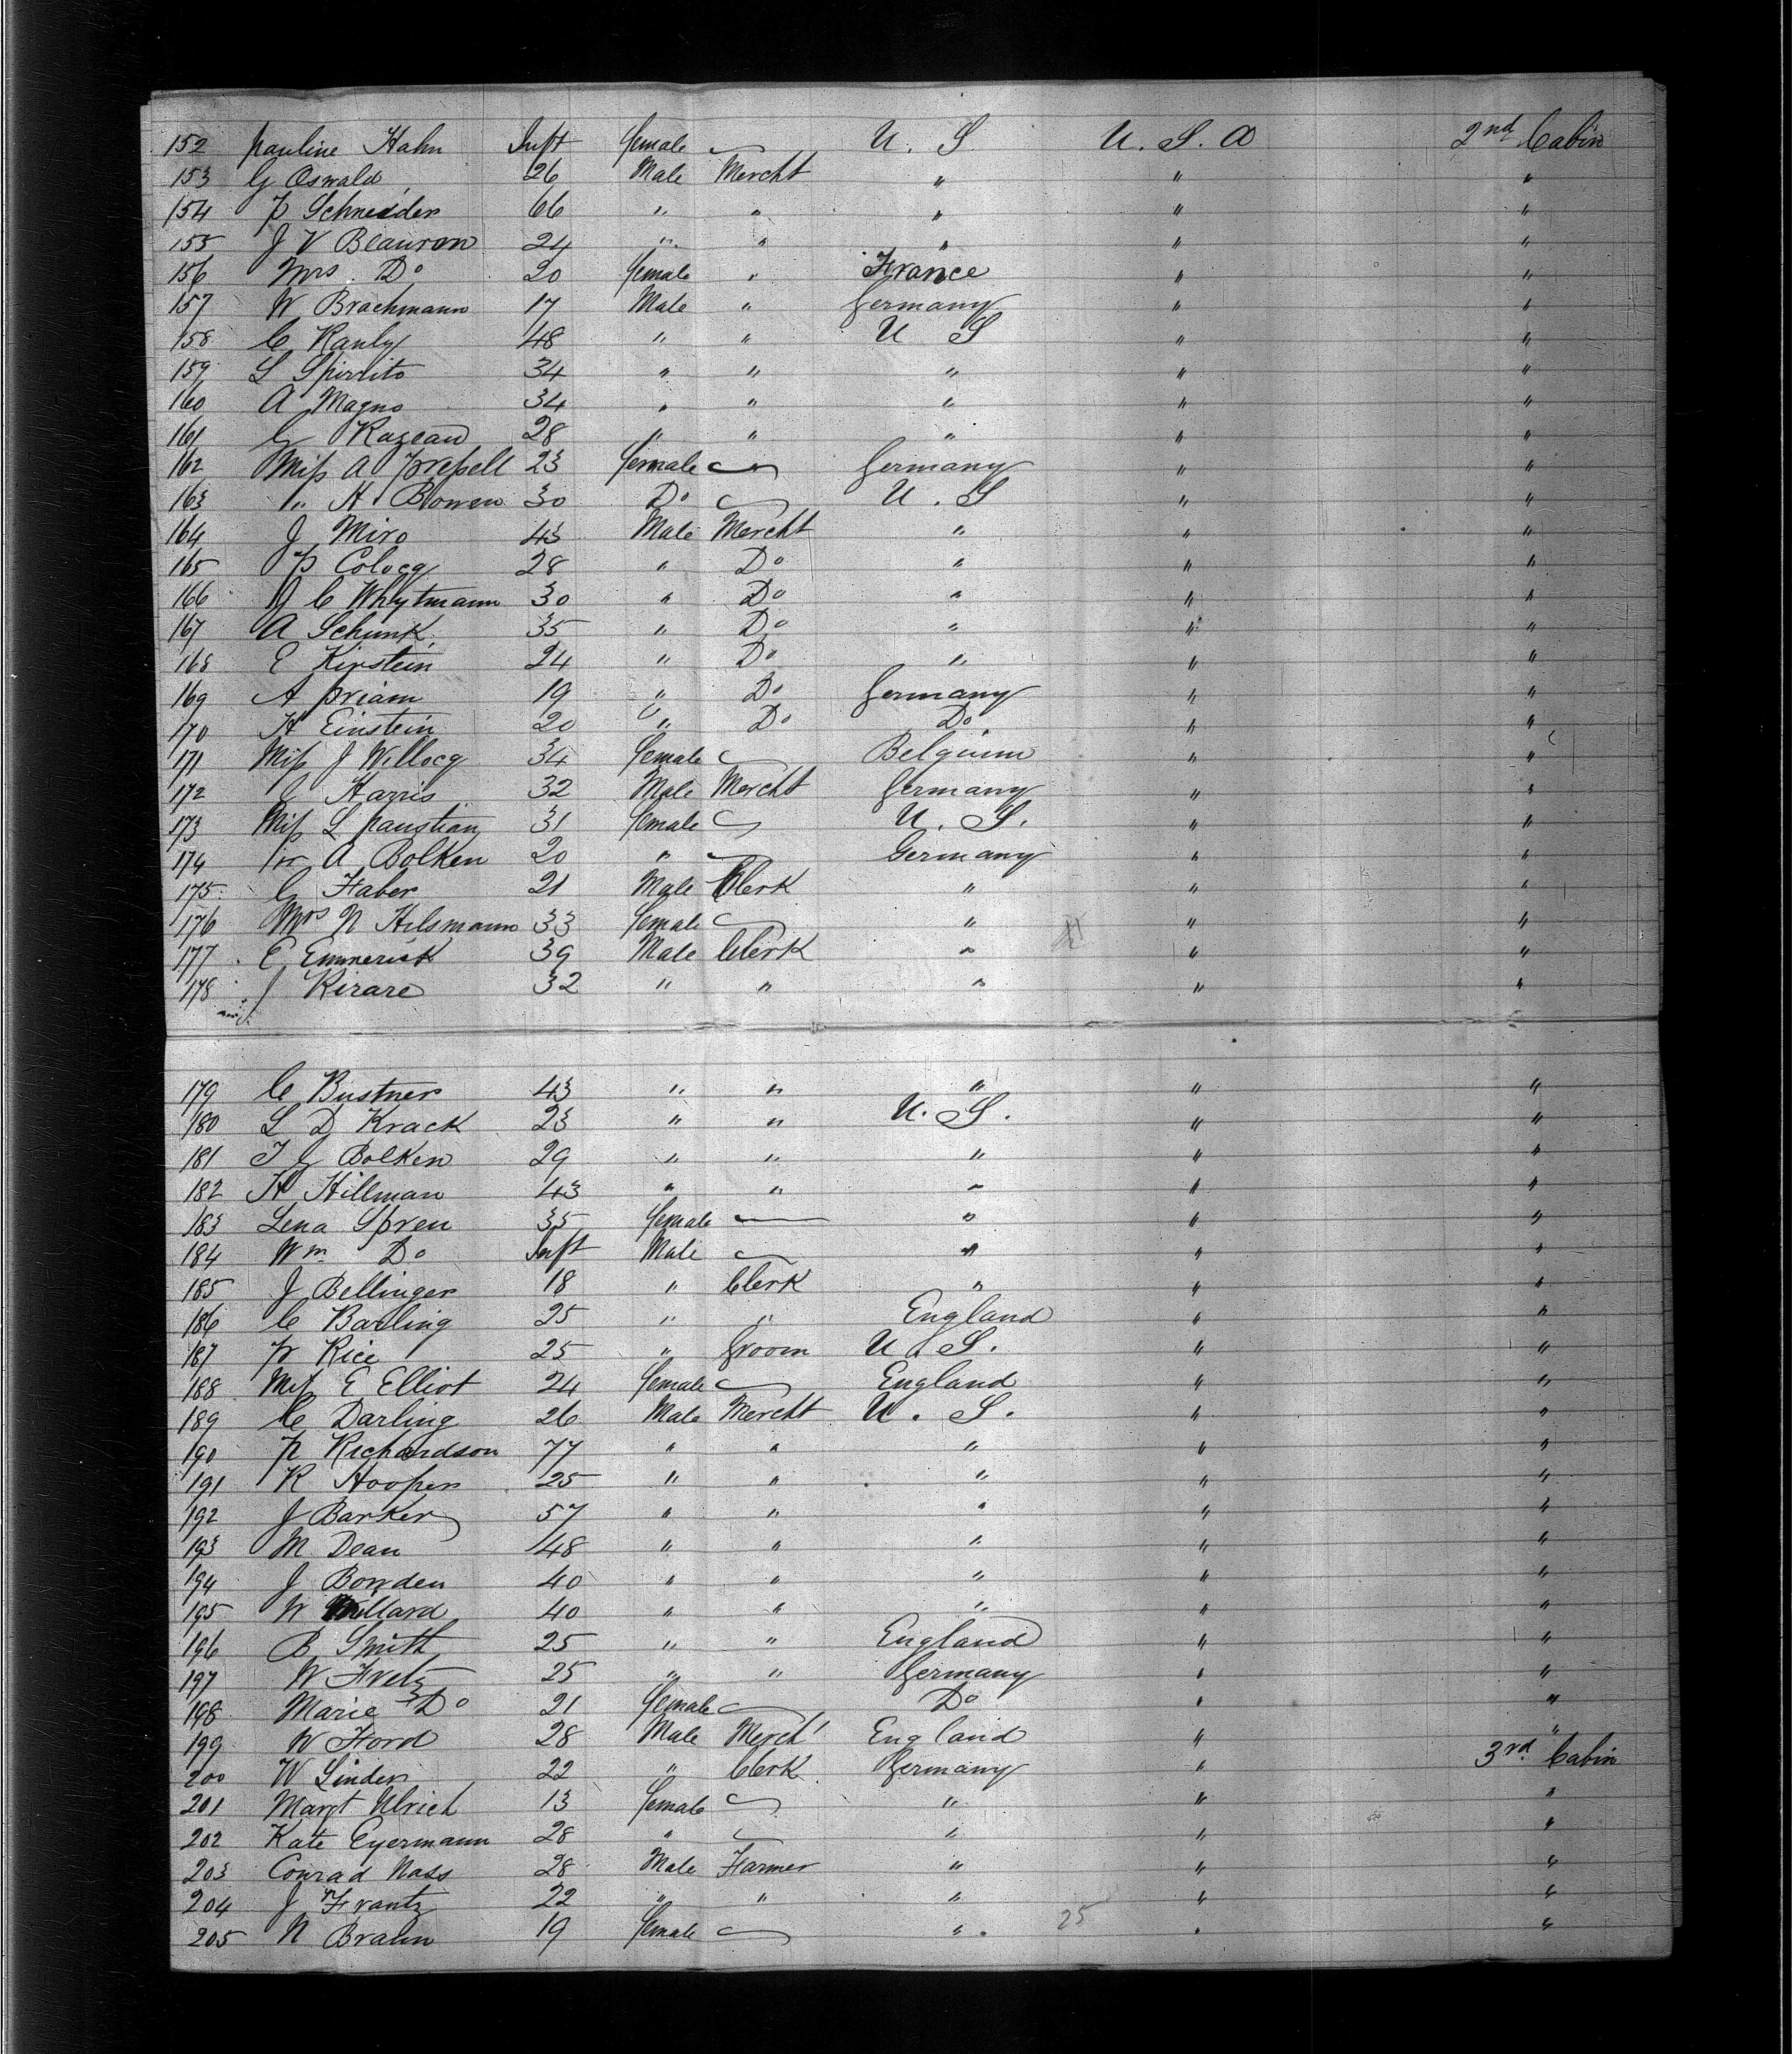 152 Pauline Hahn Inft female U. S. U. S. A 2nd Cabin
153 G Oswald 26 Male Mercht " " "
154 P Schneider 66 " " " " "
155 J V Beauron 24 " " " " "
156 Mrs. Do 20 female " France " "
157 W Brachmann 17 Male " Germany " "
158 C Ranly 48 " " U S " "
159 L Spirito 34 " " " " "
160 A Magno 34 " " " " "
161 G Kazeau 28 " " " " "
162 Miss A 23 female Germany " "
163 " H Bowen 30 Do U. S " "
164 J Miro 43 Male Mercht " " "
165 P Colocq 28 " Do " " "
166 J C Whytmann 30 " Do " " "
167 A Schunk 35 " Do " " "
168 E Kirstein 24 " Do " " "
169 A Priam 19 " Do Germany " "
170 H Einstein 20 " Do Do " "
171 Miss J Willocq 34 female Belgium " "
172 C Harris 32 Male Mercht Germany " "
173 Miss L Paustian 31 female U. S. " "
174 A Bolken 20 " Germany " "
175 G Faber 21 Male Clerk " " "
176 Mrs N Hilsmann 33 female " " "
177 E Emmerick 39 Male Clerk " " "
178 J Kirare 32 " " " " "
179 C Bustner 43 " " " " "
180 L D Krack 23 " " U. S. " "
181 T G Bolken 29 " " " " "
182 H Hillman 43 " " " " "
183 Lena Spreu 35 female " " "
184 Wm Do Inft Male " " "
185 J Bellinger 18 " Clerk " " "
186 C Barling 25 " " England " "
187 P Rice 25 " Groom U. S. " "
188 Miss E Elliot 24 female England " "
189 C Darling 26 Male Mercht U. S. " "
190 P Richardson 77 " " " " "
191 R Hooper 25 " " " " "
192 J Barker 57 " " " " "
193 M Dean 48 " " " " "
194 J Bowden 40 " " " " "
195 W Millard 40 " " " " "
196 B Smith 25 " " England " "
197 W Fretz 25 " " Germany " "
198 Marie Do 21 female Do " "
199 W Ford 28 Male Mercht England " "
200 W Linder 22 " Clerk Germany " 3rd Cabin
201 Margt Ulrich 13 female " " "
202 Kate Eyermann 28 " " " "
203 Conrad Nass 28 Male Farmer " " "
204 J Frantz 22 " " " " "
205 N Brahm 19 female " 25 " "